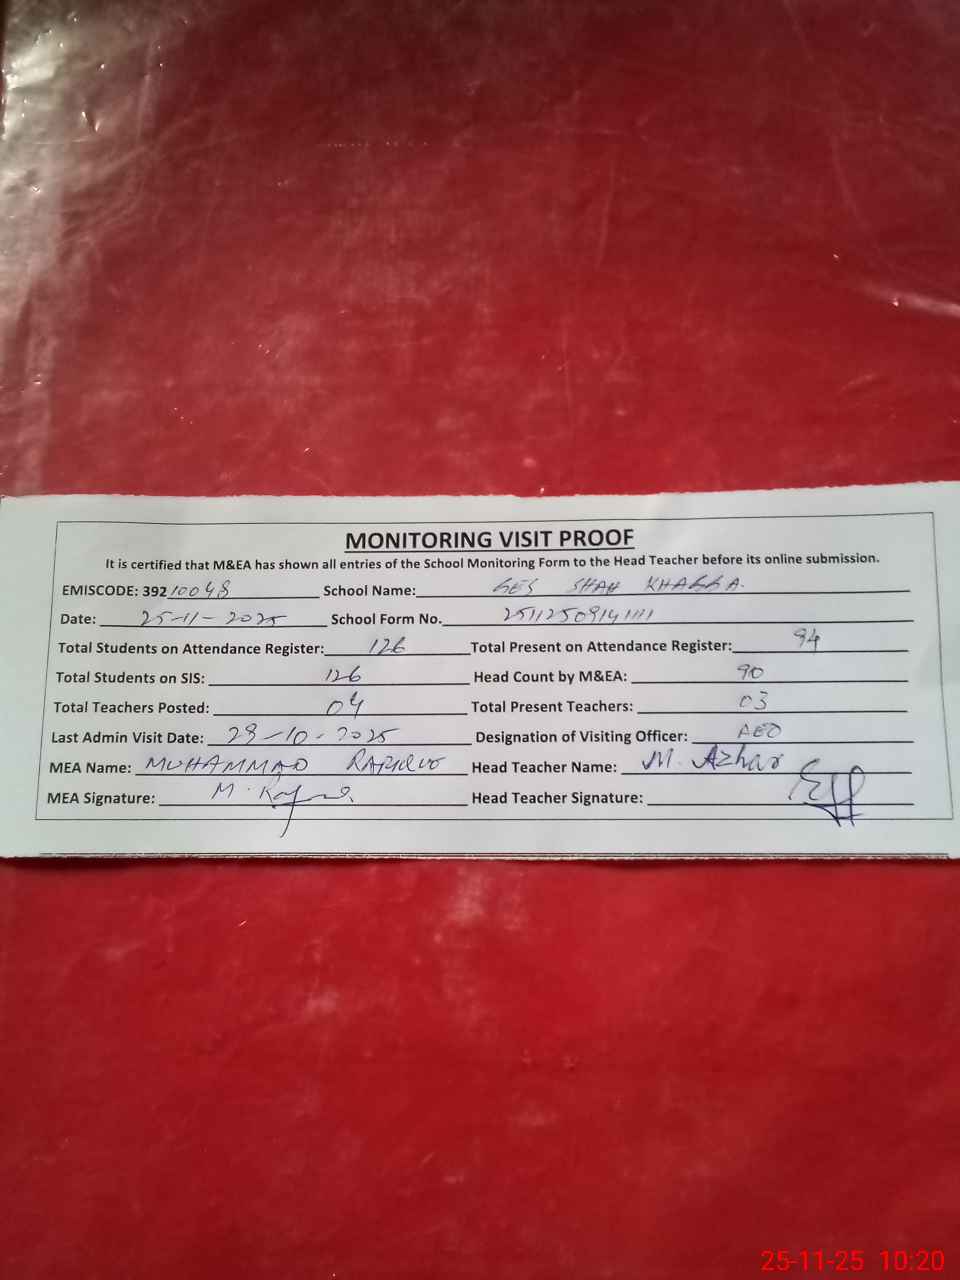 MONITORING VISIT PROOF
It is certified that M&EA has shown all entries of the School Monitoring Form to the Head Teacher before its online submission.
EMISCODE: 39210048 School Name: GES SHAH KHAGGA.
Date: 25-11-2025 School Form No. 25112509141111
Total Students on Attendance Register: 126 Total Present on Attendance Register: 94
Total Students on SIS: 126 Head Count by M&EA: 90
Total Teachers Posted: 04 Total Present Teachers: 03
Last Admin Visit Date: 29-10-2025 Designation of Visiting Officer: AEO
MEA Name: MUHAMMAD Head Teacher Name: M. Azhar
MEA Signature: M. Head Teacher Signature:
25-11-25 10:20